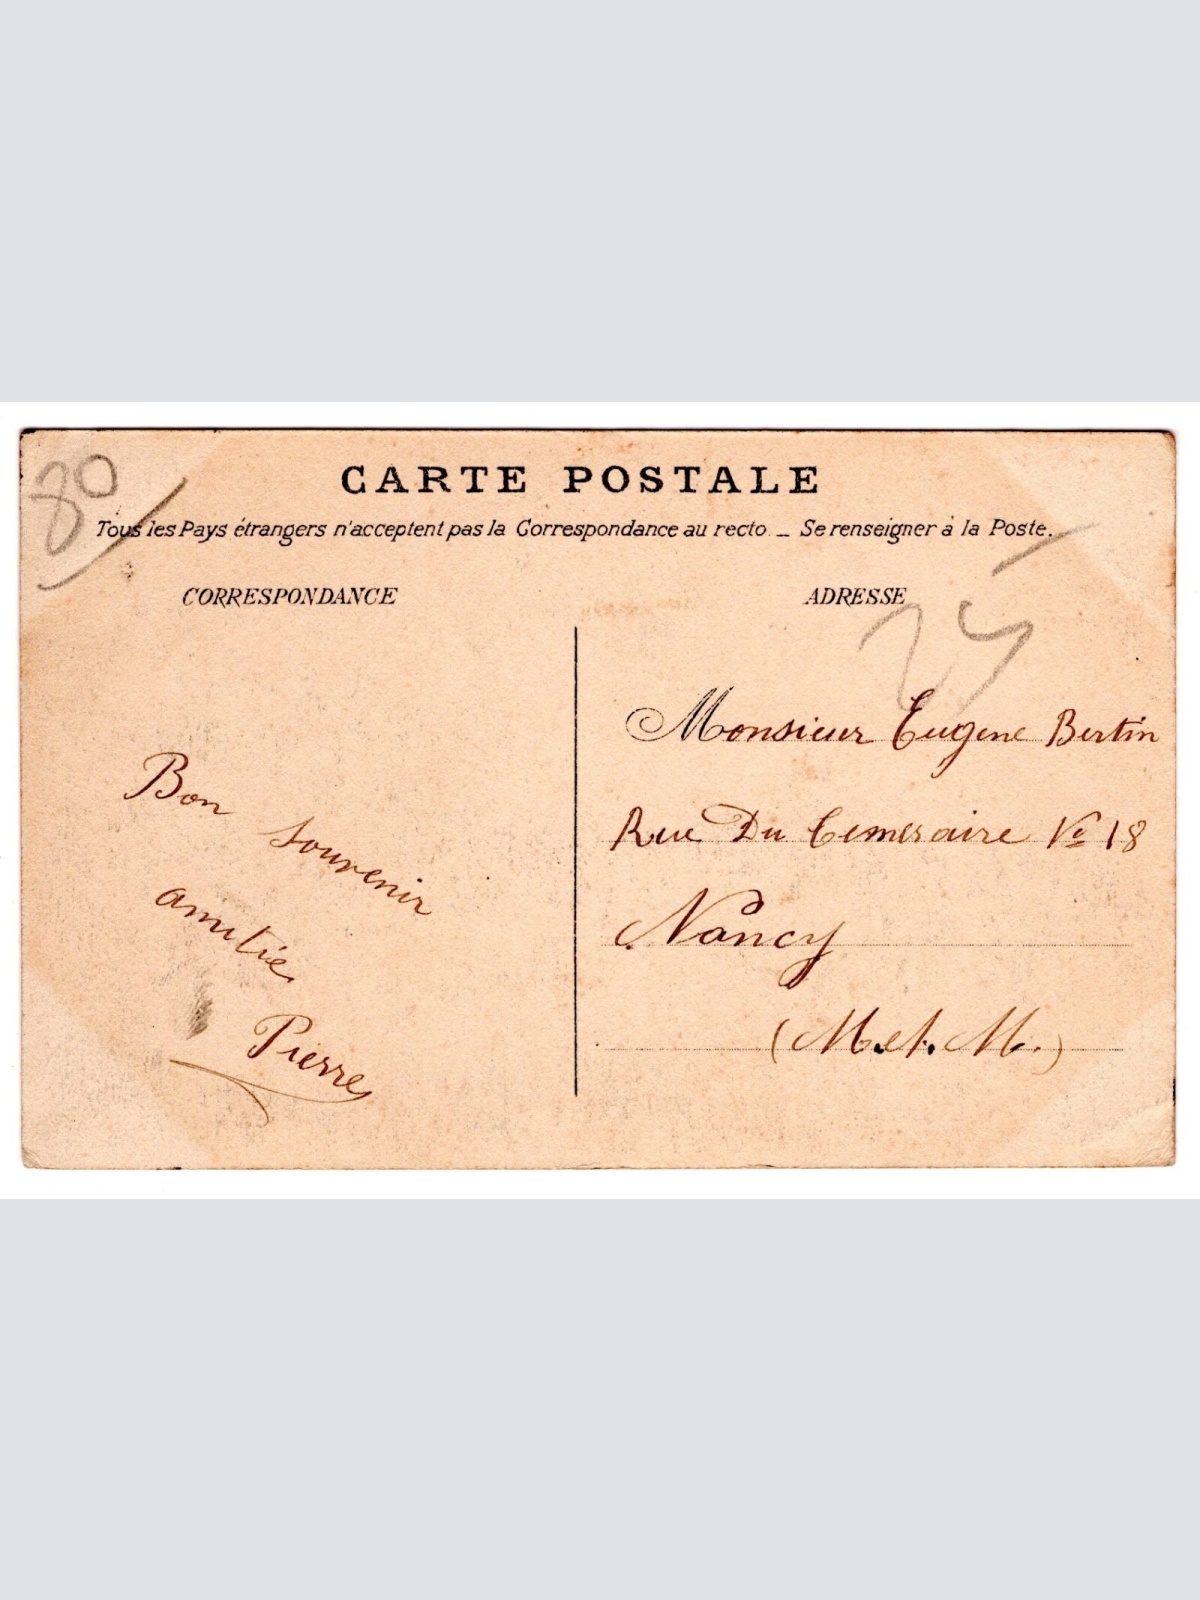 80
CARTE POSTALE
Tous les Pays étrangers n'acceptent pas la Correspondance au recto. _ Se renseigner à la Poste.
CORRESPONDANCE
Bon
souvenir
amitié
Pierre
ADRESSE
Monsieur Eugene Bertin
Rue Du Temeraire No 18
Nancy
(M. et. M.)